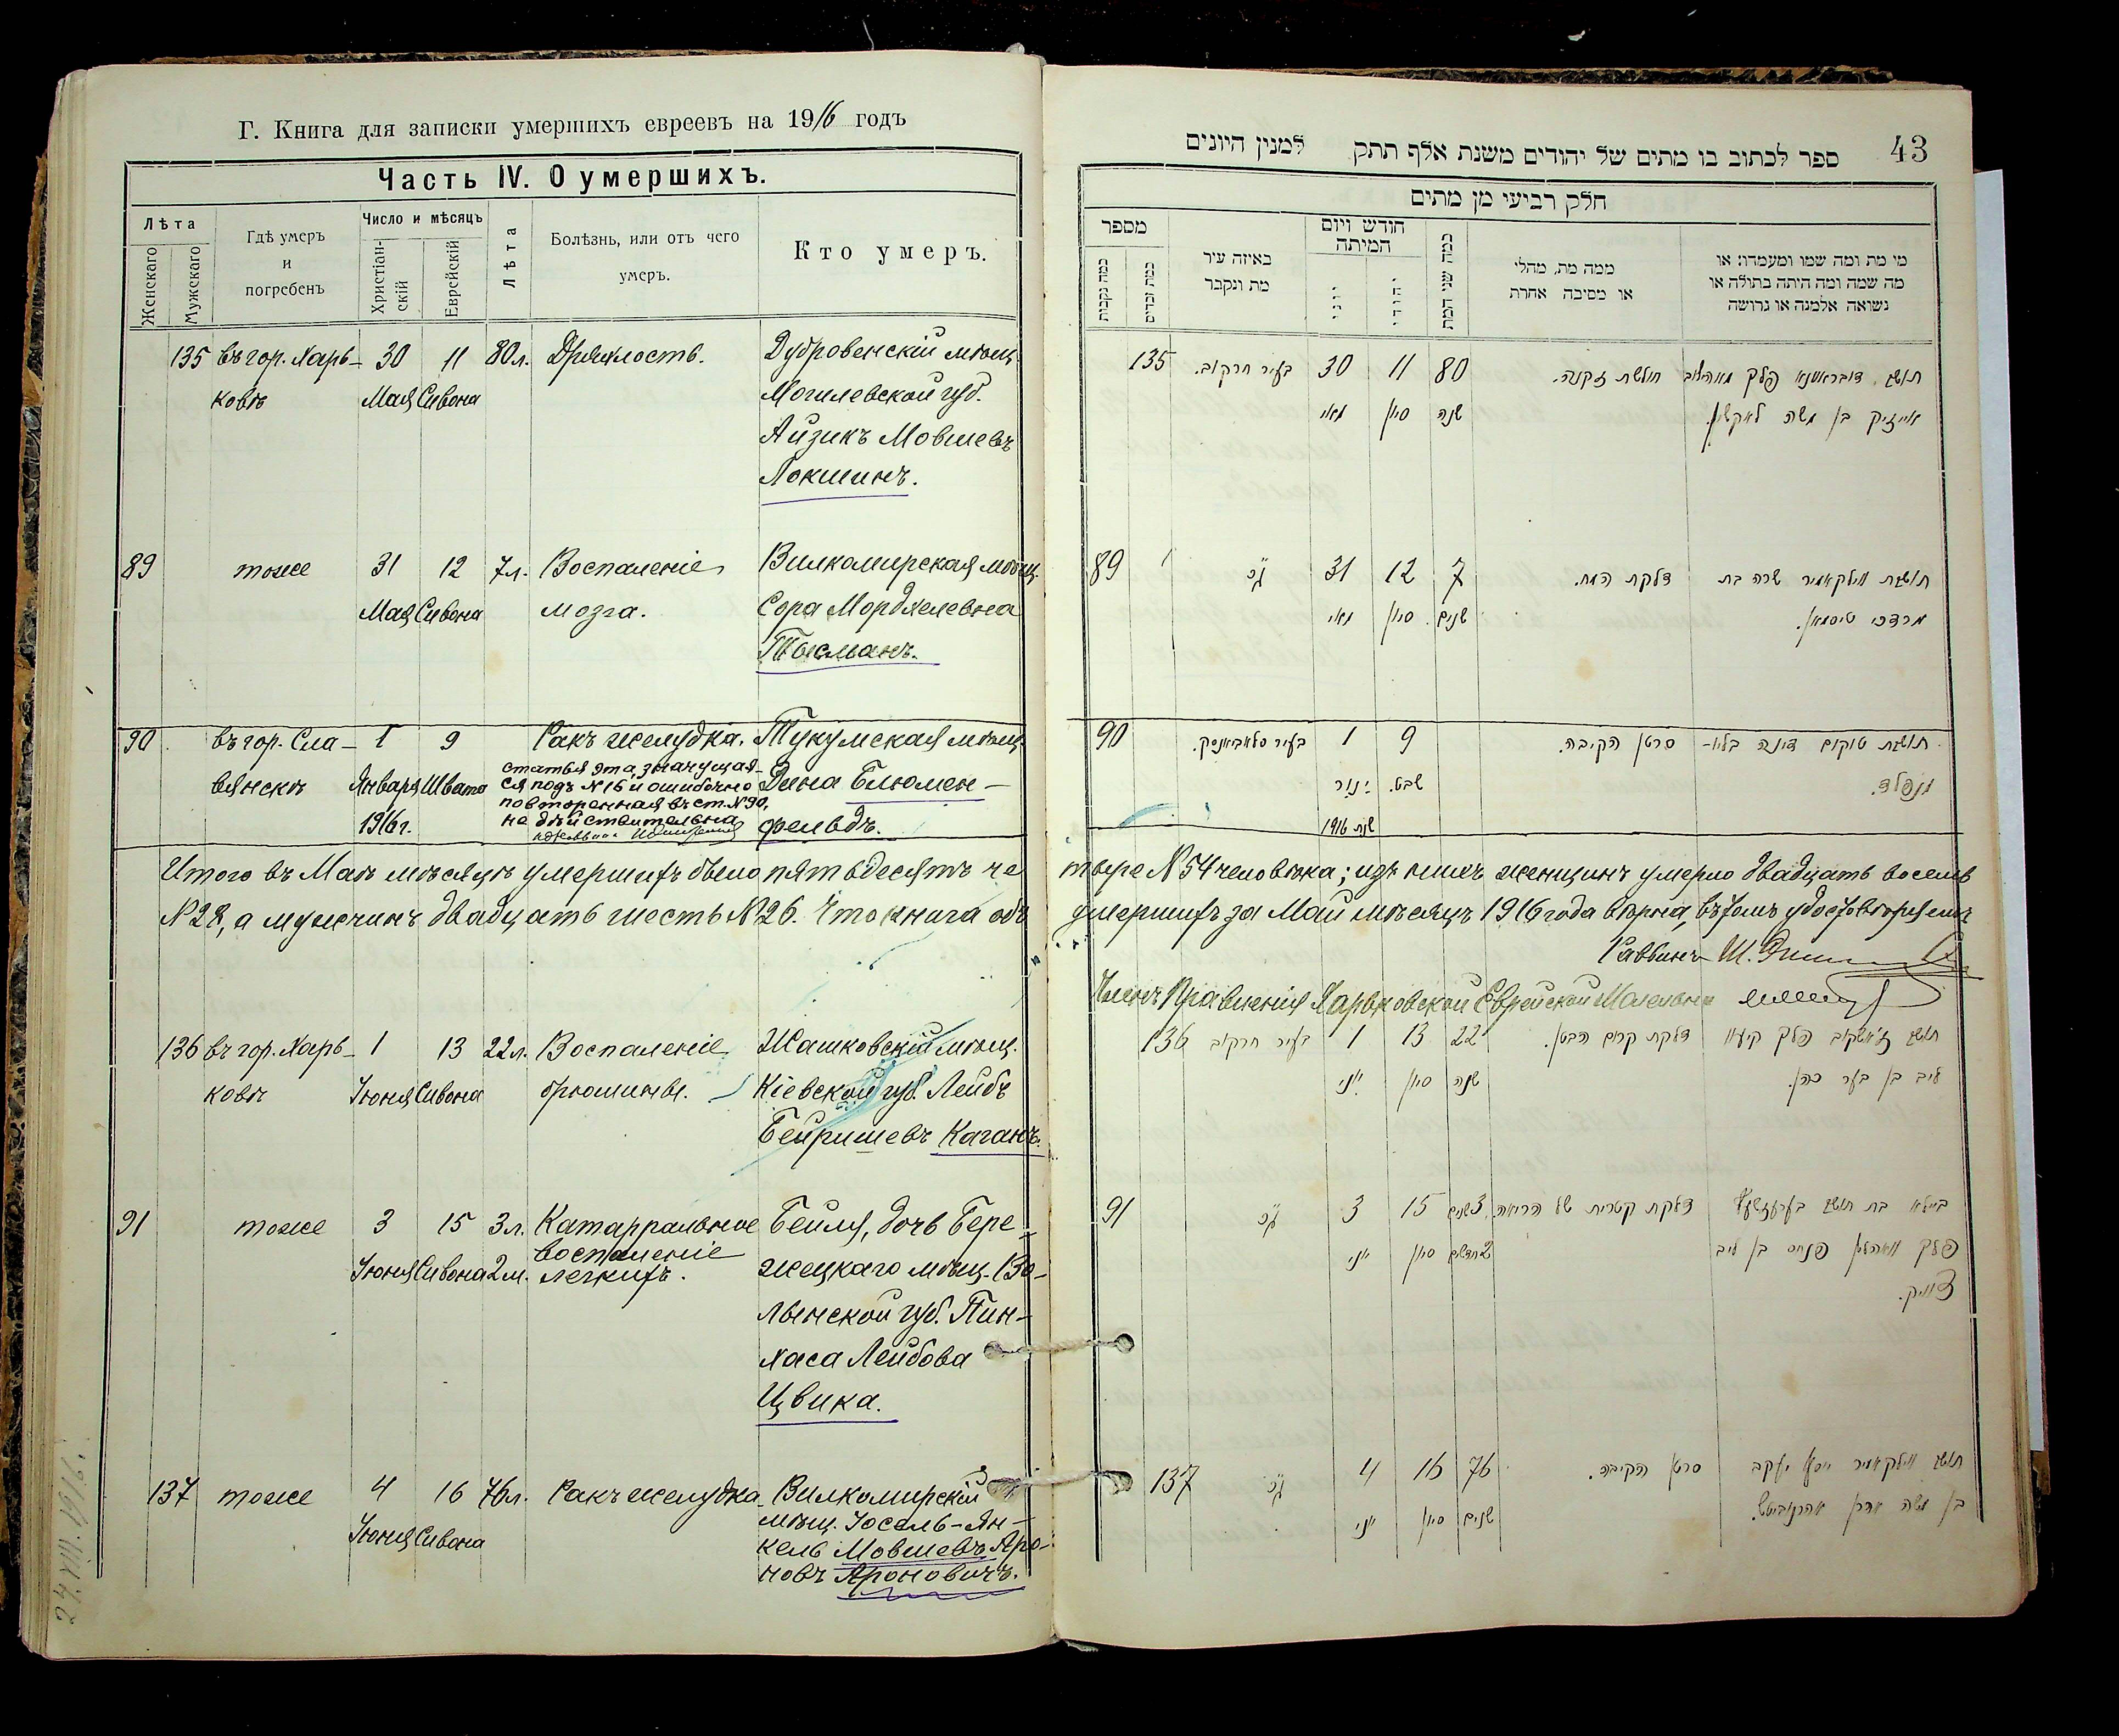 Г. Книга для записки умершихъ евреевъ на 1916 годъ
Часть IV. О умершихъ.
Лѣта
Женскаго
Мужескаго
Гдѣ умеръ
и
погребенъ
Число и мѣсяцъ
Христіан-
скій
Еврейскій
Лѣта
Болѣзнь, или отъ чего
умеръ.
Кто умеръ.
135 въ гор. Харь- 30 11 80л. Дряхлость. Дубровенскій мѣщ.
ковѣ Мая Сивона Могилевской губ.
Айзикъ Мовшевъ
Локшинъ.
89 тоже 31 12 7л. Воспаленіе Вилкомирская мѣщ.
Мая Сивона мозга. Сора Мордхелевна
Тысманъ.
90 въ гор. Сла- 1 9 Ракъ желудка. Тукумская мѣщ.
вянскѣ Января Швата Дина Блюмен-
1916г. фельдъ.
статья эта, значущая-
ся подъ №16 и ошибочно
повторенная въ ст. №90,
не дѣйствительна
Итого въ Маѣ мѣсяцѣ умершихъ было пятьдесятъ че
№28, а мужчинъ двадцать шесть №26. Что книга объ
136 въ гор. Харь- 1 13 22л. Воспаленіе Жашковскій мѣщ.
ковѣ Іюня Сивона брюшины. Кіевской губ. Лейбъ
Бейришевъ Каганъ.
91 тоже 3 15 3л. Катарральное Бейля, дочь Бере-
воспаленіе
Іюня Сивона 2м. легкихъ. жецкаго мѣщ. Во-
лынской губ. Пин-
хаса Лейбова
Цвика.
137 тоже 4 16 76л. Ракъ желудка Вилкомирскій
Іюня Сивона мѣщ. Іосель-Ян-
кель Мовшевъ Аро-
новъ Ароновичъ.
43
ספר לכתוב בו מתים של יהודים משנת אלף תתק למנין היונים
חלק רביעי מן מתים
מספר
כמה נקבות
כמה זכרים
באיזה עיר
מת ונקבר
חודש ויום
המיתה
יוני
יהודי
כמה שני המת
ממה מת, מחלי
או מסיבה אחרת
מי מת ומה שמו ומעמדו: או
מה שמה ומה היתה בתולה או
נשואה אלמנה או גרושה
135 בעיר חרקוב. 30 11 80 חולשת זקנה. תושב דובראוונא פלך מאהלוב
מאי סיון שנה אייזיק בן משה לאקשין.
89 כ"ג 31 12 7 דלקת המח. תושבת ווילקאמיר שרה בת
מאי סיון שנים מרדכי טיסמאן.
90 בעיר סלאביאנסק. 1 9 סרטן הקיבה. תושבת טוקום דינה בליו-
ינואר שבט. מנפלד.
שנת 1916
тыре №54 человѣка; изъ нихъ женщинъ умерло двадцать восемь
умершихъ за Май мѣсяцъ 1916 года вѣрна, въ томъ удостовѣряемъ
Раввинъ
Членъ Правленія Харьковской Еврейской Молельни
136 בעיר חרקוב 1 13 22 דלקת קרום הבטן. תושב זאשקוב פלך קיעוו
יוני סיון שנה ליב בן בער כהן.
91 כ"ג 3 15 3 שנים דלקת קטרית של הריאה ביילא בת תושב
יוני סיון 2 חדשים פלך וואהלין פנחס בן ליב
צוויק.
137 כ"ג 4 16 76 סרטן הקיבה. תושב ווילקאמיר יוסף יעקב
יוני סיון שנים בן משה אהרן אהרנוביטש.
24.VIII.1916.